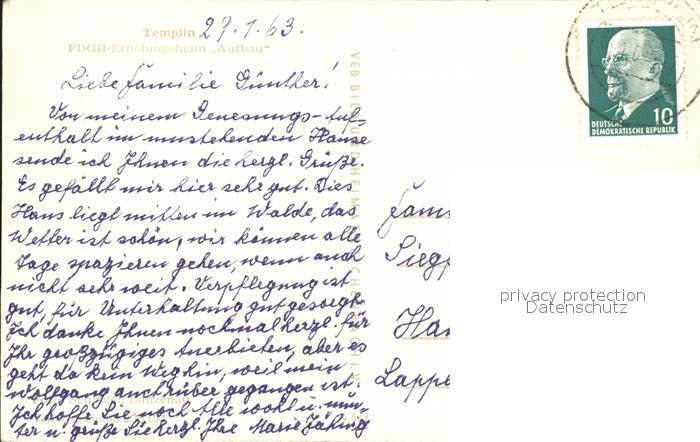 Templin 29.1.63.
FDGB-Erholungsheim „Aufbau"
Liebe Familie Günther!
Von meinem Genesungs-Auf-
enthalt im umstehenden Hause
sende ich Ihnen die herzl. Grüße.
Es gefällt mir hier sehr gut. Das
Haus liegt mitten im Walde, das
Wetter ist schön, wir können alle
Tage spazieren gehen, wenn auch
nicht sehr weit. Verpflegung ist
gut, für Unterhaltung gut gesorgt.
Ich danke Ihnen nochmal herzl. für
Ihr großzügiges Anerbieten, aber es
geht da kein Weg hin, weil mein
Wolfgang auch rüber gegangen ist.
Ich hoffe, Sie noch Alle wohl u. mun-
ter u. grüße Sie herzl. Ihre Marie Jähnig
VEB BILD
HEIMA
10
DEUTSCHE
DEMOKRATISCHE REPUBLIK
Fam
Siegf
Han
Lappe
privacy protection
Datenschutz